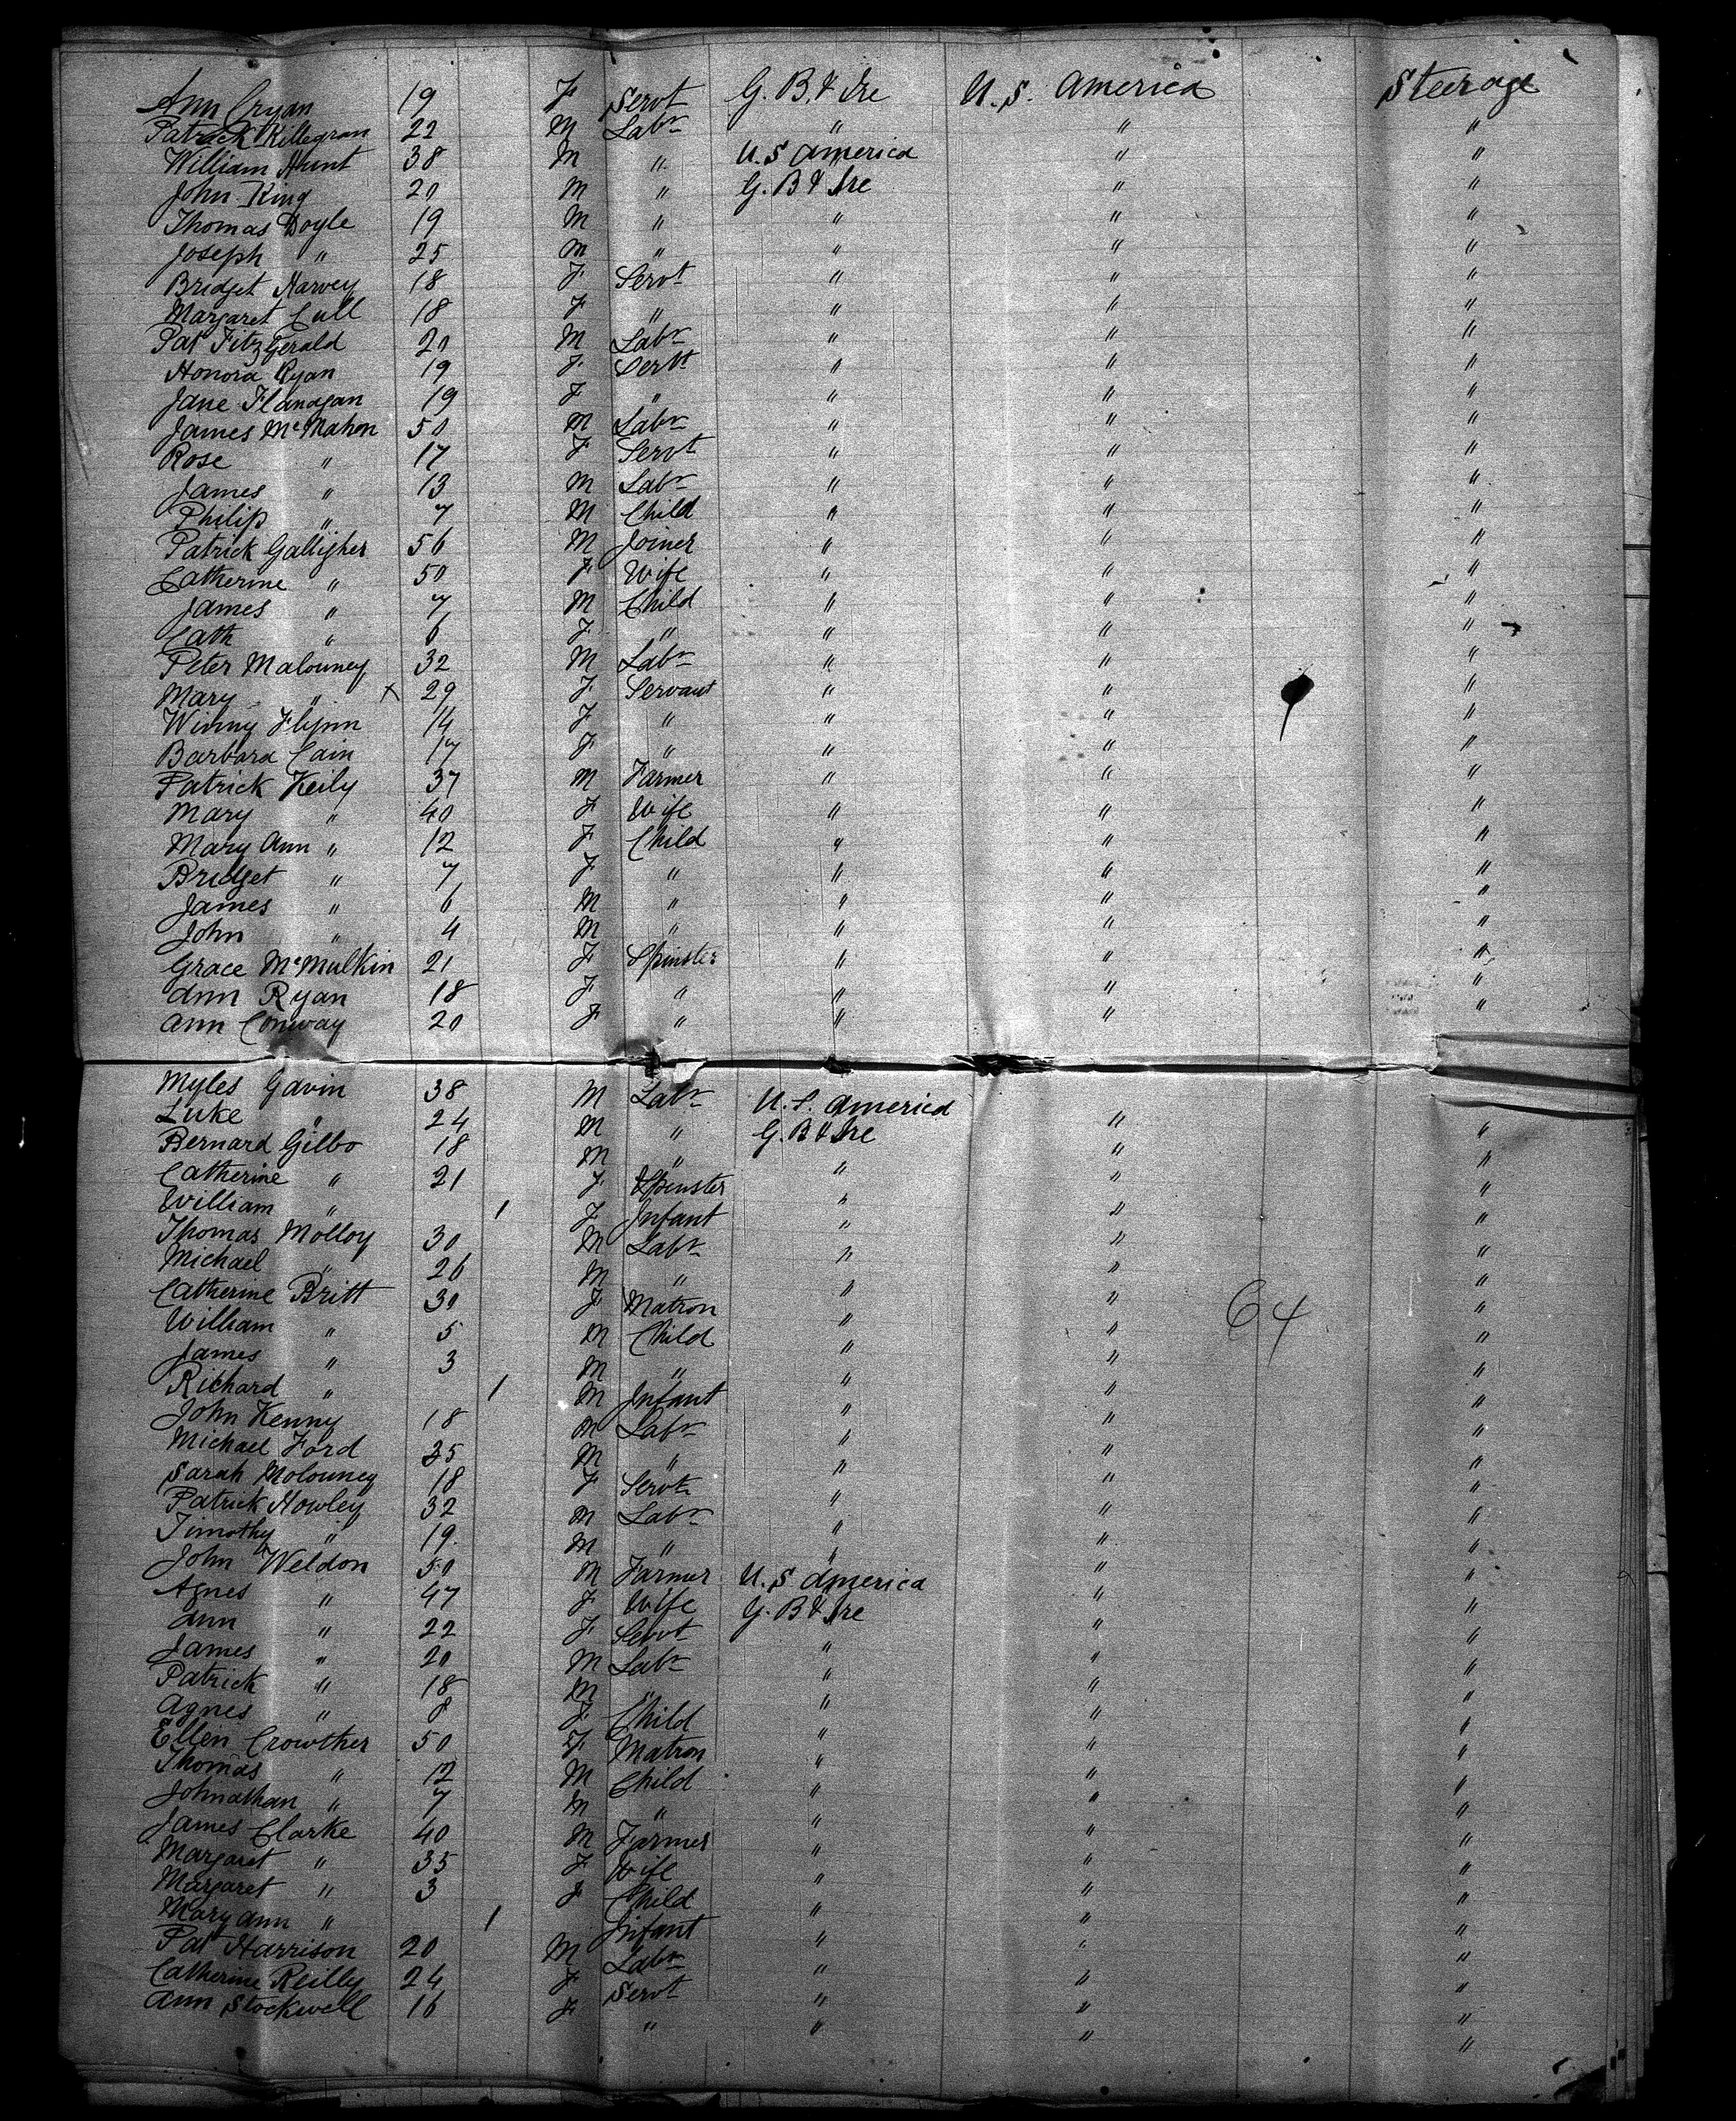 Ann Cryan 19 F Servt G. B. & Ire U.S. America Steerage
Patrick Killegran 22 M Labr " " "
William Hunt 38 M " U.S America " "
John King 20 M " G. B & Ire " "
Thomas Doyle 19 M " " " "
Joseph " 25 M " " " "
Bridget Harvey 18 F Servt " " "
Margaret Cull 18 F " " " "
Pat FitzGerald 20 M Labr " " "
Honora Ryan 19 F Servt " " "
Jane Flanagan 19 F " " " "
James McMahon 50 M Labr " " "
Rose " 17 F Servt " " "
James " 13 M Labr " " "
Philip " 7 M Child " " "
Patrick Galligher 56 M Joiner " " "
Catherine " 50 F Wife " " "
James " 7 M Child " " "
Cath " 6 F " " " "
Peter Malouney 32 M Labr " " "
Mary " x 29 F Servant " " "
Winny Flynn 14 F " " " "
Barbara Cain 17 F " " " "
Patrick Keily 37 M Farmer " " "
Mary " 40 F Wife " " "
Mary Ann " 12 F Child " " "
Bridget " 7 F " " " "
James " 6 M " " " "
John " 4 M " " " "
Grace McMulkin 21 F Spinster " " "
Ann Ryan 18 F " " " "
Ann Conway 20 F " " " "
Myles Gavin 38 M Labr U.S. America
Luke " 24 M " G. B & Ire " "
Bernard Gilbo 18 M " " " "
Catherine " 21 F Spinster " " "
William " 1 F Infant " " "
Thomas Molloy 30 M Labr " " "
Michael " 26 M " " " "
Catherine Britt 30 F Matron " " "
William " 5 M Child " " "
64
James " 3 M " " " "
Richard " 1 M Infant " " "
John Kenny 18 M Labr " " "
Michael Ford 35 M " " " "
Sarah Molouney 18 F Servt " " "
Patrick Howley 32 M Labr " " "
Timothy " 19 M " " " "
John Weldon 50 M Farmer U.S America " "
Agnes " 47 F Wife G. B & Ire " "
Ann " 22 F Servt " " "
James " 20 M Labr " " "
Patrick " 18 M " " " "
Agnes " 8 F Child " " "
Ellen Crowther 50 F Matron " " "
Thomas " 12 M Child " " "
Johnathan " 7 M " " " "
James Clarke 40 M Farmer " " "
Margaret " 35 F Wife " " "
Margaret " 3 F Child " " "
Mary Ann " 1 Infant " " "
Pat Harrison 20 M Labr " " "
Catherine Reilly 24 F Servt " " "
Ann Stockwell 16 F " " " "